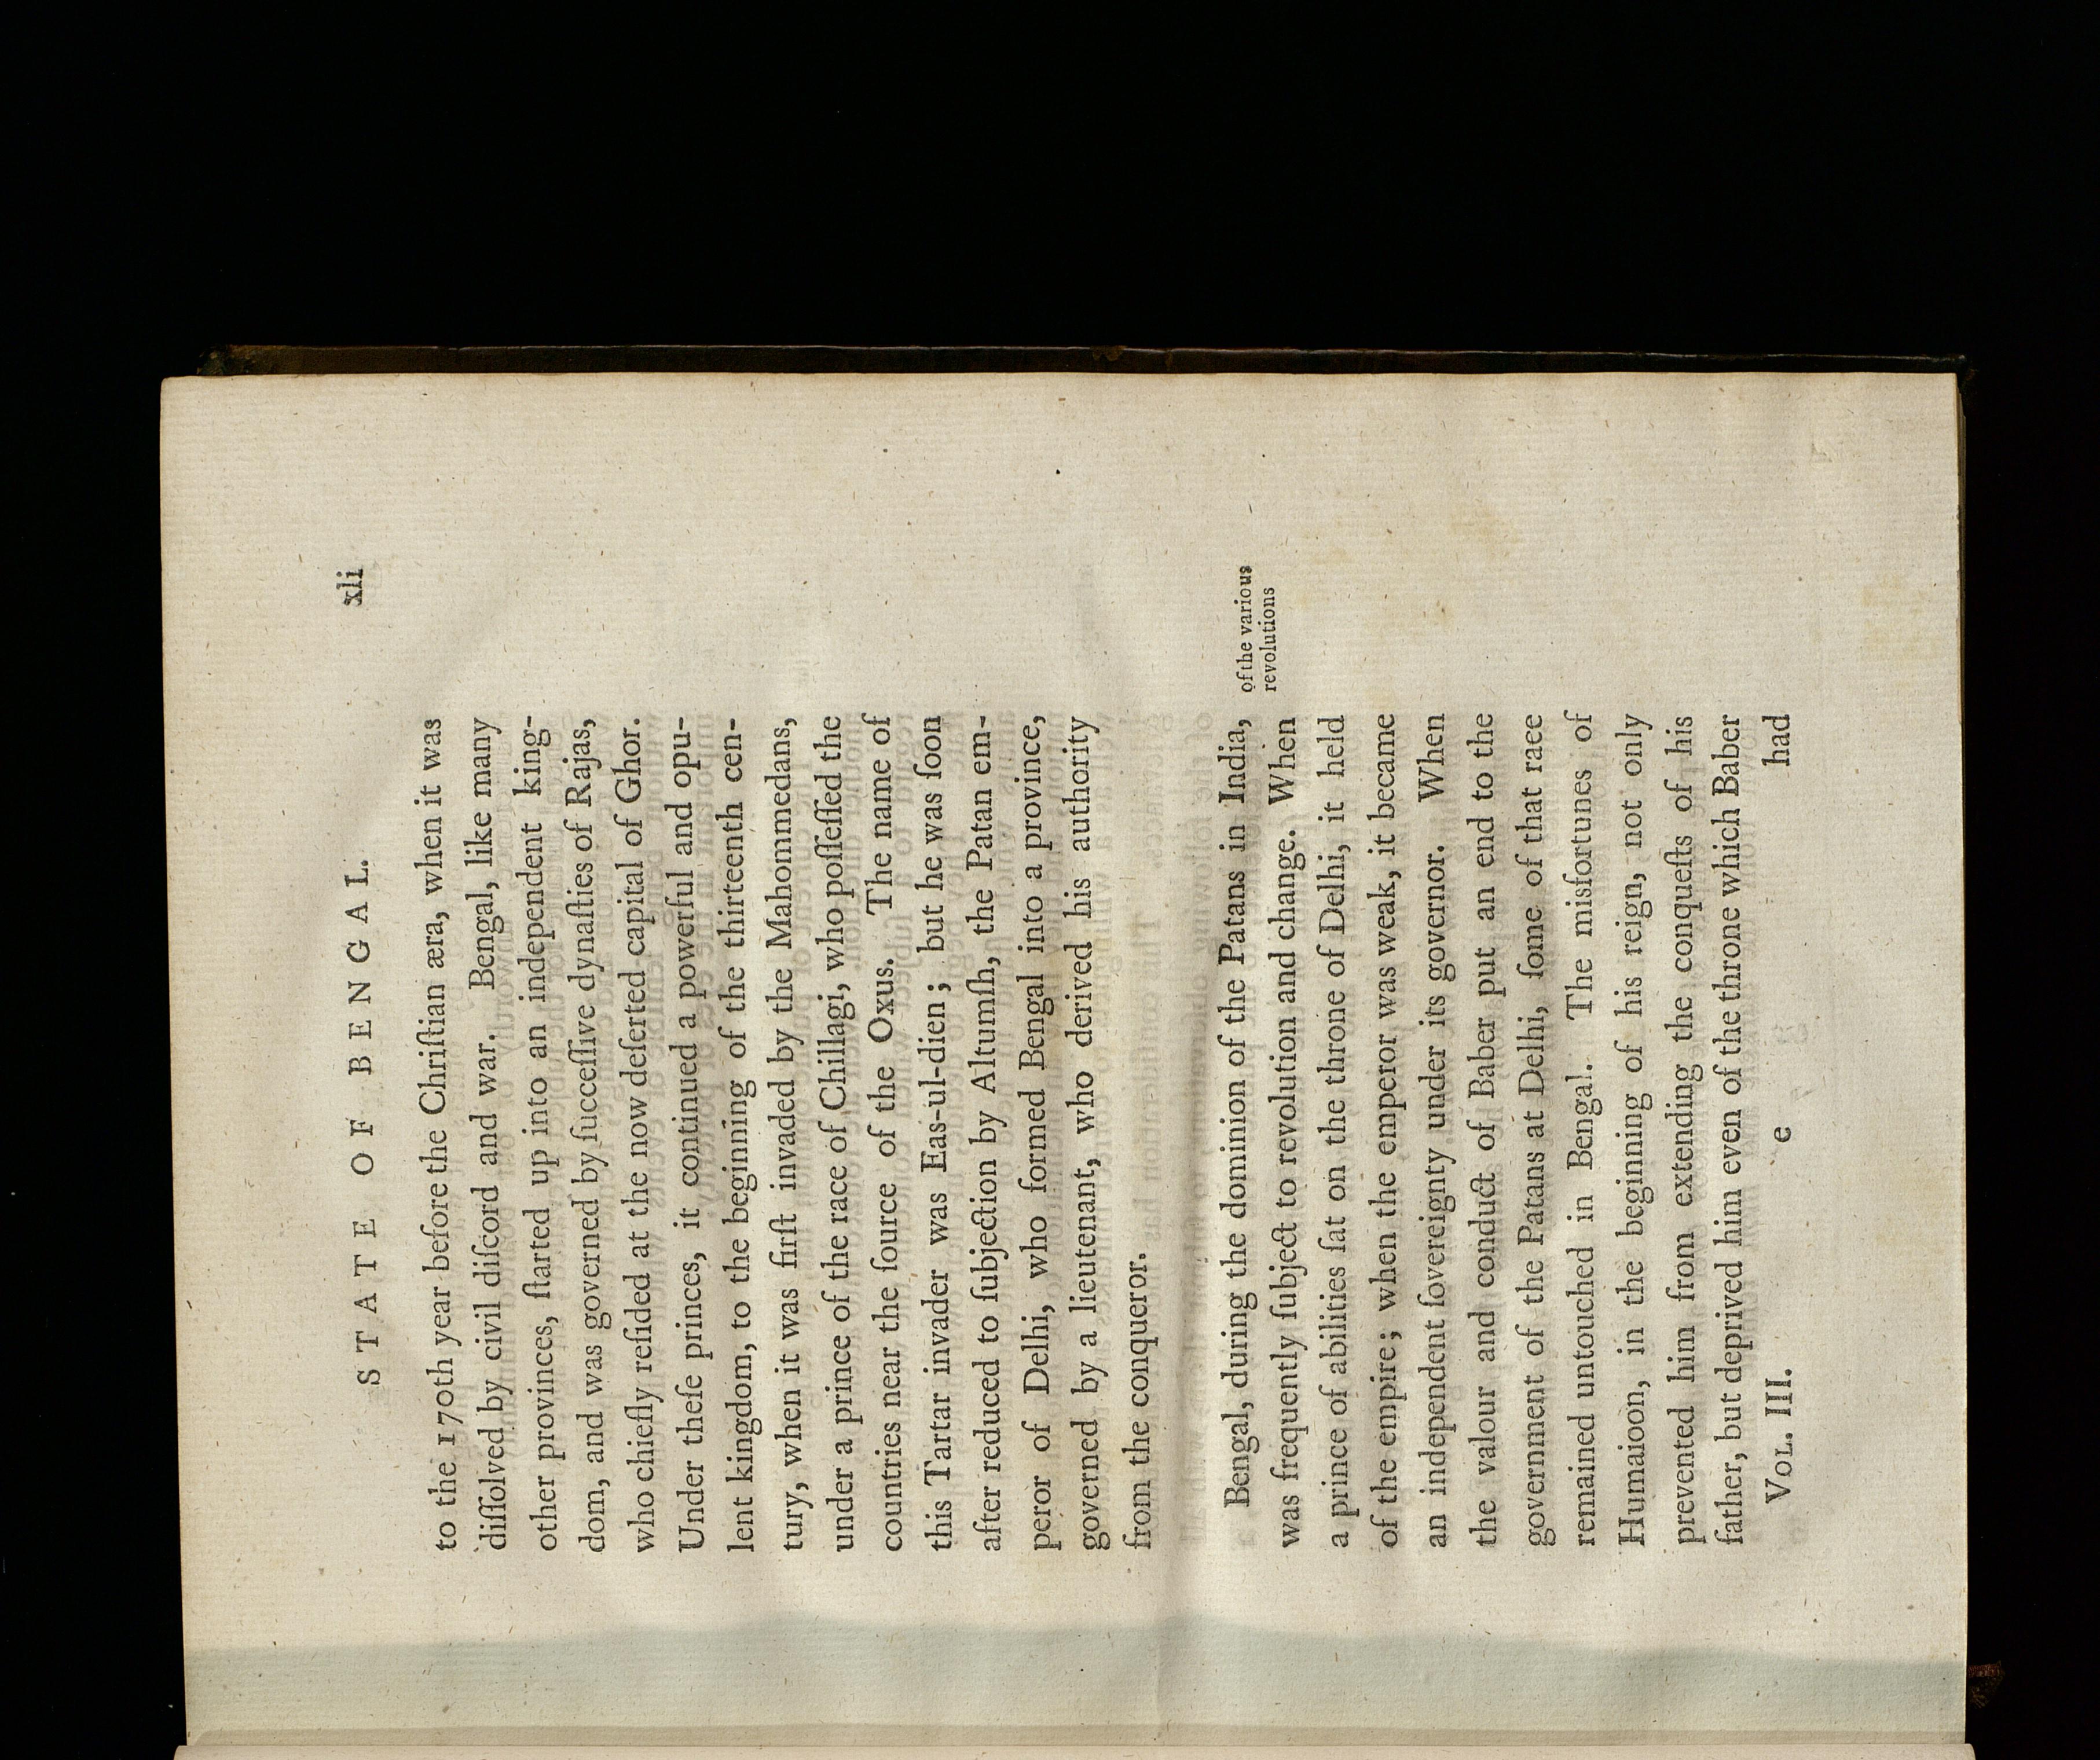 STATE OF BENGAL. xli
to the 170th year before the Chriſtian æra, when it was
diſſolved by civil diſcord and war. Bengal, like many
other provinces, ſtarted up into an independent king-
dom, and was governed by ſucceſſive dynaſties of Rajas,
who chiefly reſided at the now deſerted capital of Ghor.
Under theſe princes, it continued a powerful and opu-
lent kingdom, to the beginning of the thirteenth cen-
tury, when it was firſt invaded by the Mahommedans,
under a prince of the race of Chillagi, who poſſeſſed the
countries near the ſource of the Oxus. The name of
this Tartar invader was Eas-ul-dien; but he was ſoon
after reduced to ſubjection by Altumſh, the Patan em-
peror of Delhi, who formed Bengal into a province,
governed by a lieutenant, who derived his authority
from the conqueror.
Bengal, during the dominion of the Patans in India,
of the various
revolutions
was frequently ſubject to revolution and change. When
a prince of abilities ſat on the throne of Delhi, it held
of the empire; when the emperor was weak, it became
an independent ſovereignty under its governor. When
the valour and conduct of Baber put an end to the
government of the Patans at Delhi, ſome of that race
remained untouched in Bengal. The misfortunes of
Humaioon, in the beginning of his reign, not only
prevented him from extending the conqueſts of his
father, but deprived him even of the throne which Baber
VOL. III. e had